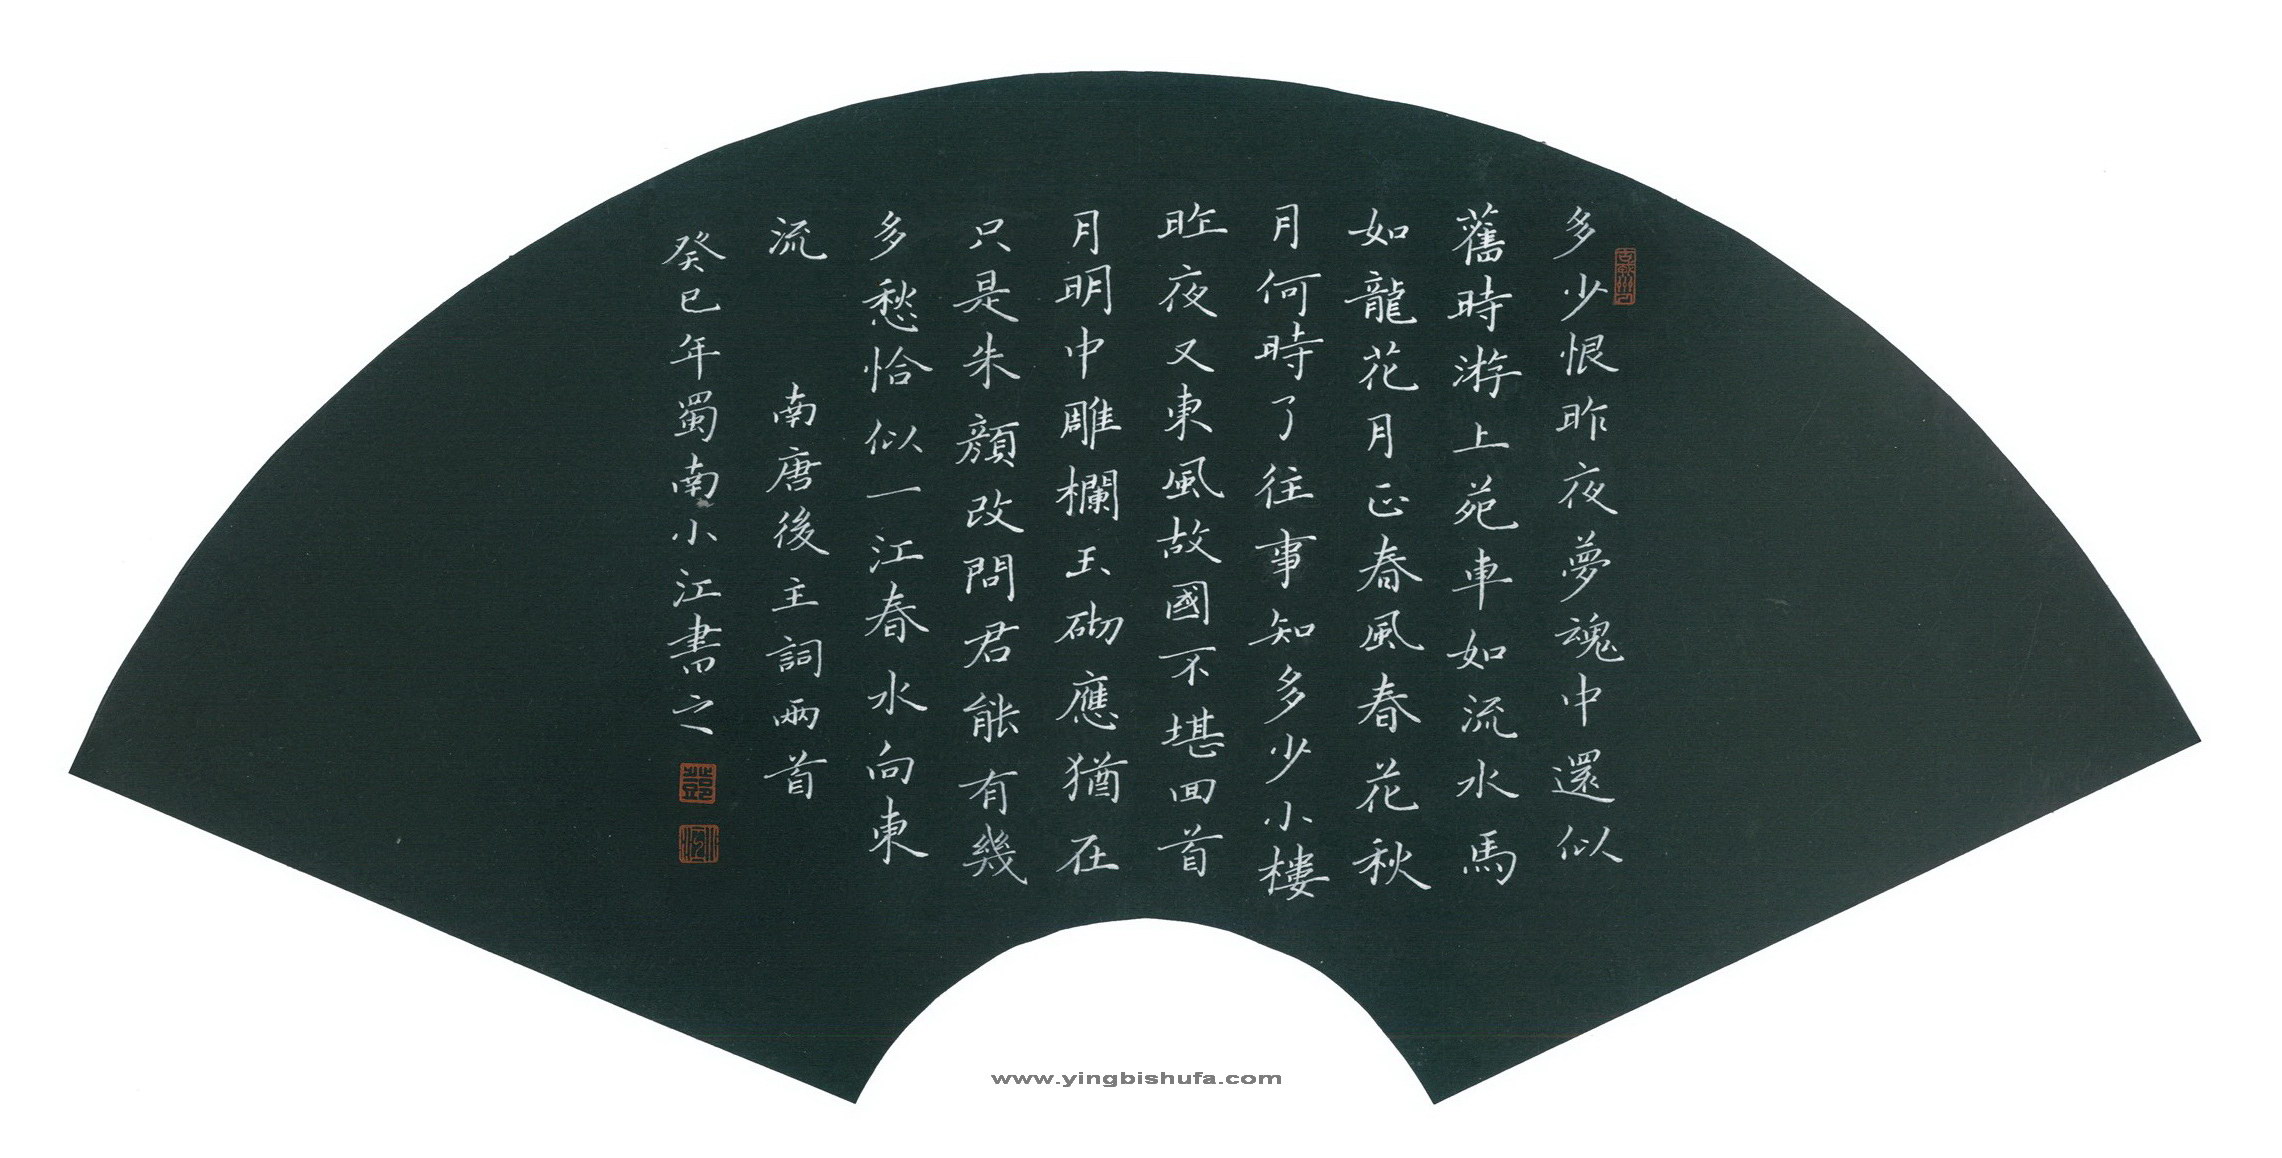 多少恨昨夜夢魂中還似
舊時游上苑車如流水馬
如龍花月正春風春花秋
月何時了往事知多少小樓
昨夜又東風故國不堪回首
月明中雕欄玉砌應猶在
只是朱顏改問君能有幾
多愁恰似一江春水向東
流 南唐後主詞兩首
癸巳年蜀南小江書之
www.yingbishufa.com